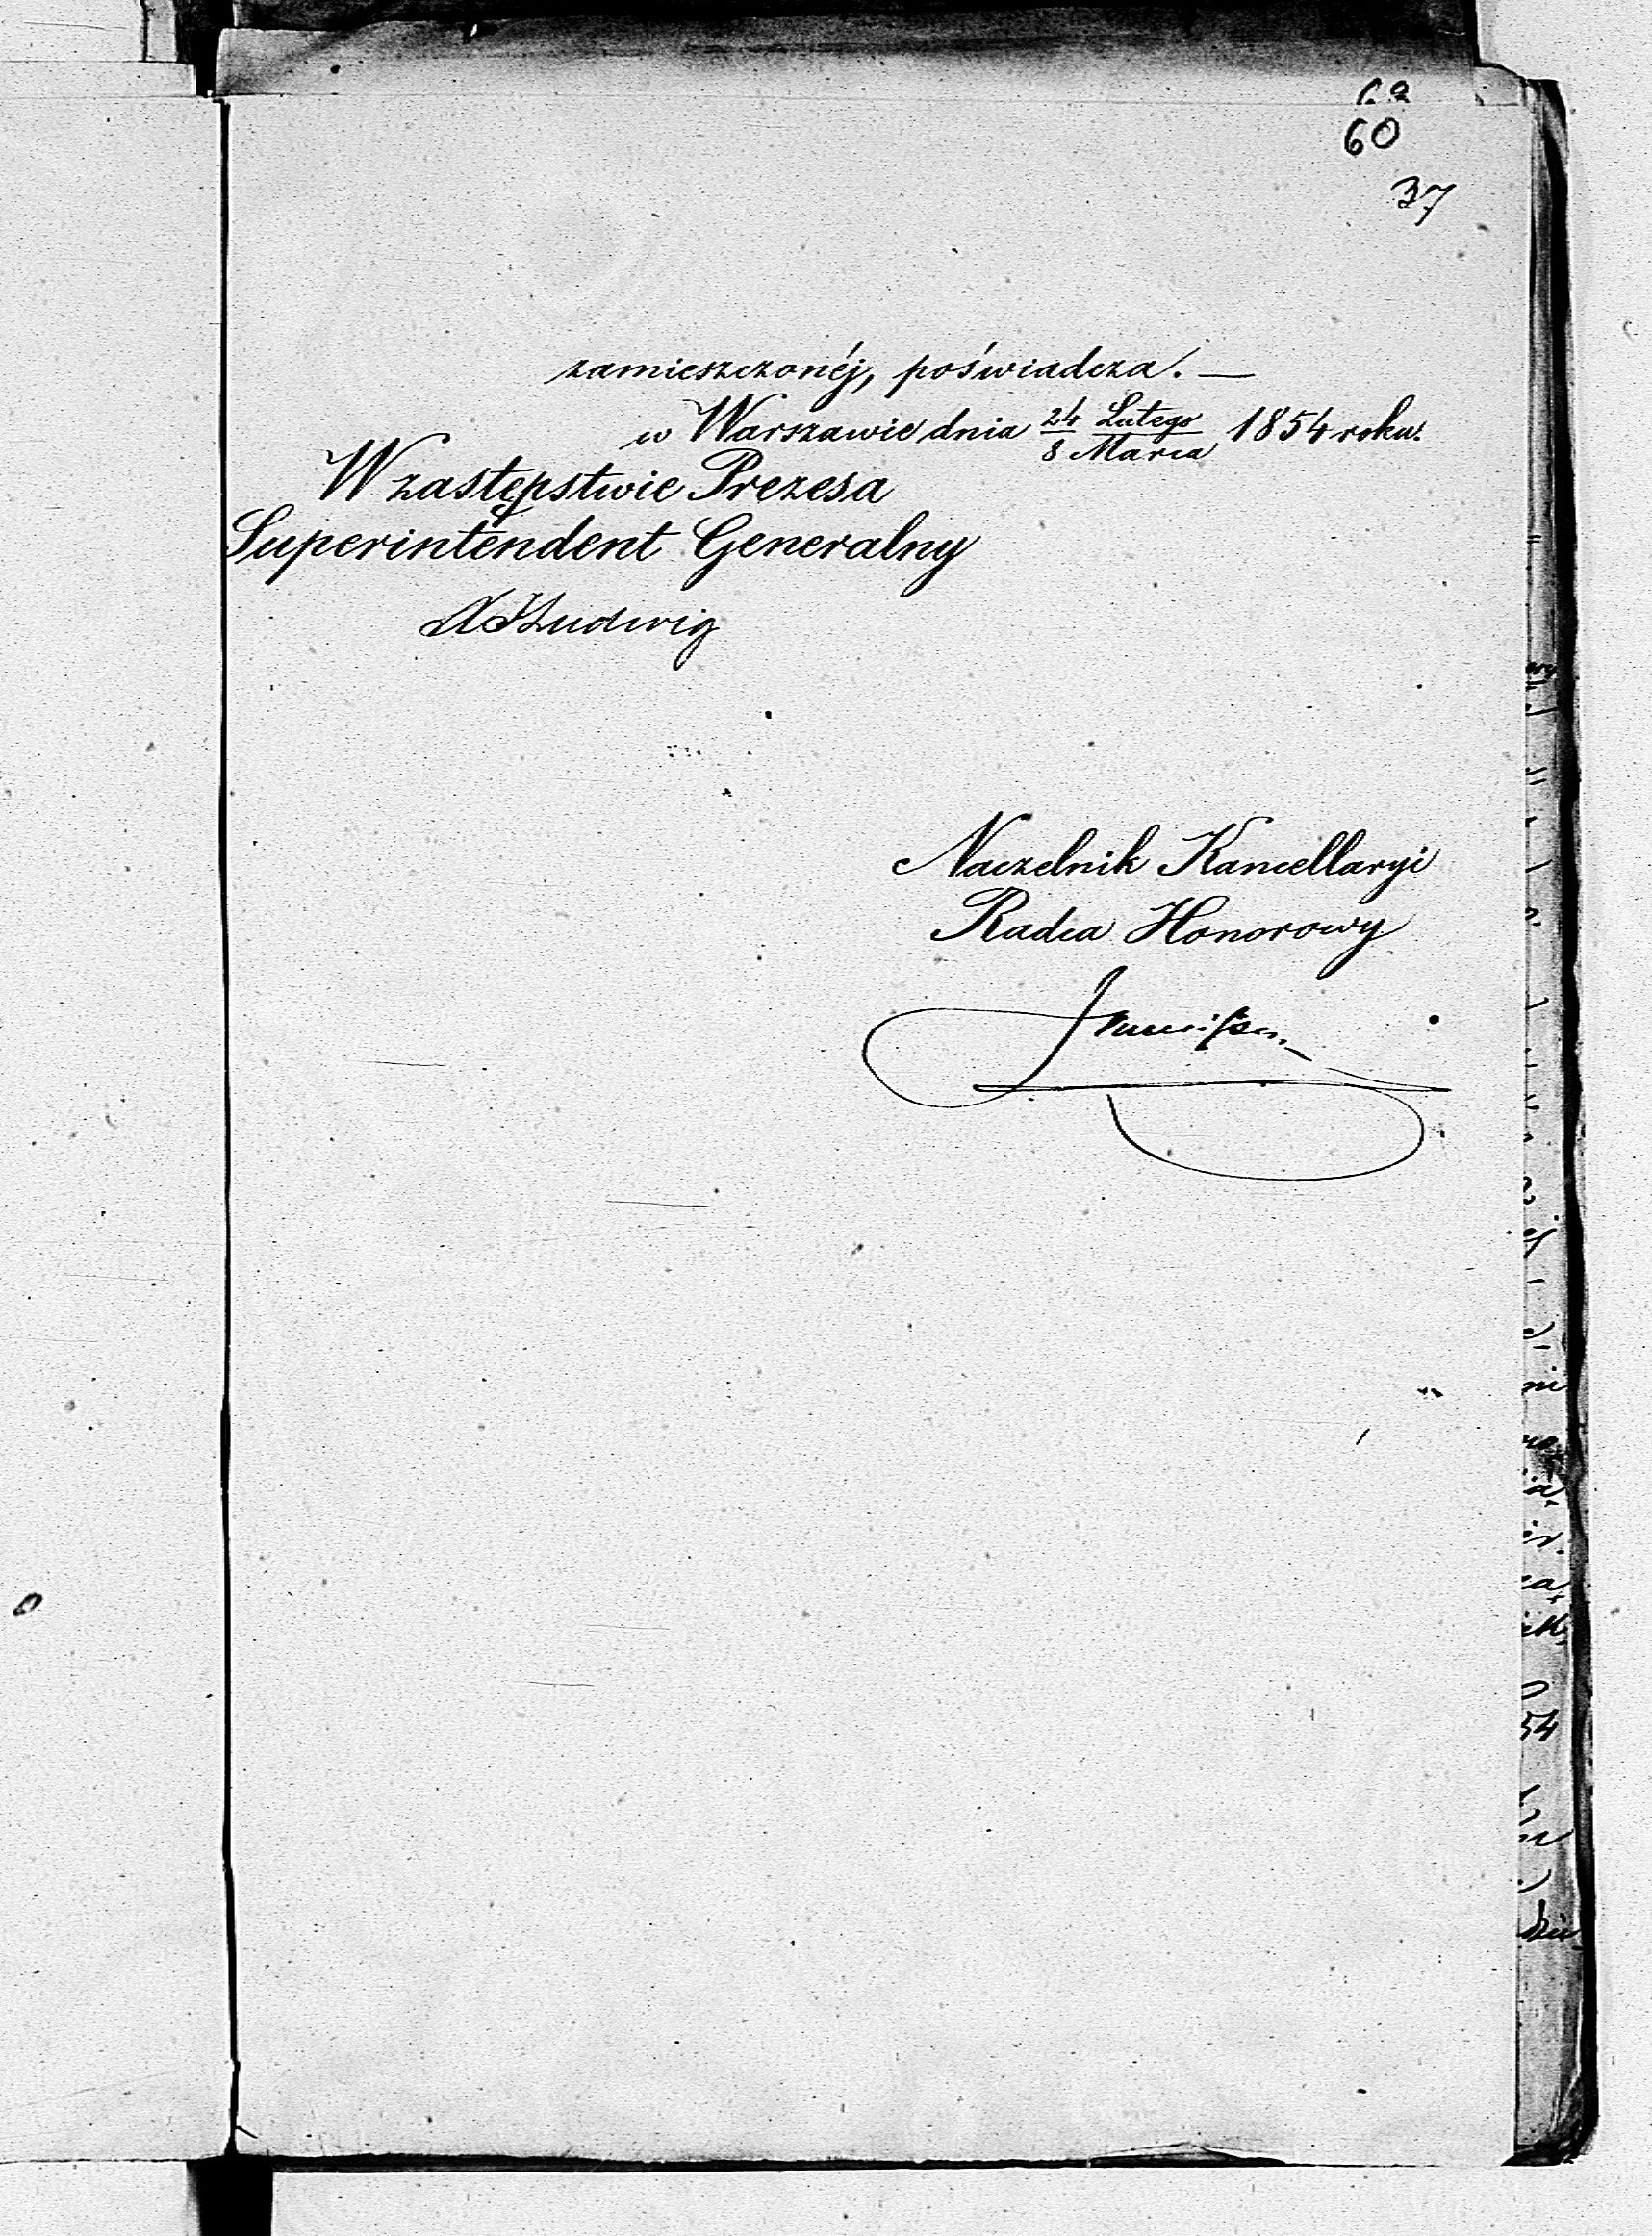 60
37
zamieszczonéj, poświadcza. —
w Warszawie dnia 24 Lutego / 8 Marca 1854 roku.
W zastępstwie Prezesa
Superintendent Generalny
Ludwig
Naczelnik Kancellaryi
Radca Honorowy